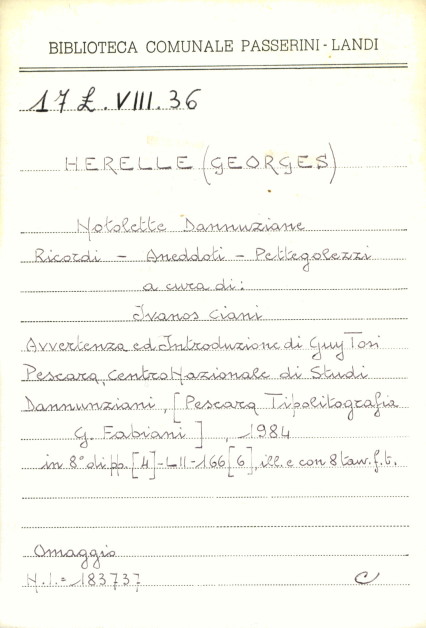 BIBLIOTECA COMUNALE PASSERINI-LANDI
17 L. VIII. 36
HERELLE (GEORGES)
Notolette Dannuziane
Ricordi - Aneddoti - Pettegolezzi
a cura di:
Ivanos Ciani
Avvertenza ed Introduzione di Guy Tosi
Pescara, Centro Nazionale di Studi
Dannunziani, [Pescara Tipolitografia
G. Fabiani], 1984
in 8° di pp. [4]-LII-166[6], ill. e con 8 tavv. f.t.
Omaggio
N.I.= 183737 C